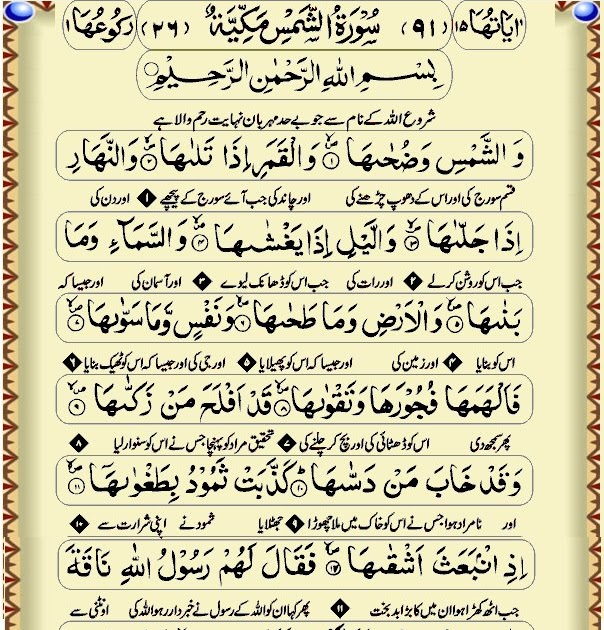 اٰیَاتُهَا ۱۵ (۹۱) سُوْرَةُ الشَّمْسِ مَكِّيَّةٌ (۲۶) رُكُوْعُهَا ۱
بِسْمِ اللهِ الرَّحْمٰنِ الرَّحِيْمِ
شروع اللہ کے نام سے جو بے حد مہربان نہایت رحم والا ہے
وَالشَّمْسِ وَضُحٰىهَا ۱ وَالْقَمَرِ اِذَا تَلٰىهَا ۲ وَالنَّهَارِ
قسم سورج کی اور اس کے دھوپ چڑھنے کی اور چاند کی جب آئے سورج کے پیچھے ۱ اور دن کی
اِذَا جَلّٰىهَا ۳ وَالَّيْلِ اِذَا يَغْشٰىهَا ۴ وَالسَّمَآءِ وَمَا
جب اس کو روشن کر لے ۲ اور رات کی جب اس کو ڈھانک لیوے ۳ اور آسمان کی اور جیسا کہ
بَنٰىهَا ۵ وَالْاَرْضِ وَمَا طَحٰىهَا ۶ وَنَفْسٍ وَّمَا سَوّٰىهَا ۷
اس کو بنایا ۴ اور زمین کی اور جیسا کہ اس کو پھیلایا ۵ اور جی کی اور جیسا کہ اس کو ٹھیک بنایا ۶
فَاَلْهَمَهَا فُجُوْرَهَا وَتَقْوٰىهَا ۸ قَدْ اَفْلَحَ مَنْ زَكّٰىهَا ۹
پھر سمجھ دی اس کو ڈھٹائی کی اور بچ کر چلنے کی ۷ تحقیق مراد کو پہنچا جس نے اس کو سنوار لیا ۸
وَقَدْ خَابَ مَنْ دَسّٰىهَا ۱۰ كَذَّبَتْ ثَمُوْدُ بِطَغْوٰىهَآ ۱۱
اور نامراد ہوا جس نے اس کو خاک میں ملا چھوڑا ۹ جھٹلایا ثمود نے اپنی شرارت سے ۱۰
اِذِ انْۢبَعَثَ اَشْقٰىهَا ۱۲ فَقَالَ لَهُمْ رَسُوْلُ اللهِ نَاقَةَ
جب اٹھ کھڑا ہوا ان میں کا بڑا بد بخت ۱۱ پھر کہا ان کو اللہ کے رسول نے خبردار رہو اللہ کی اونٹنی سے